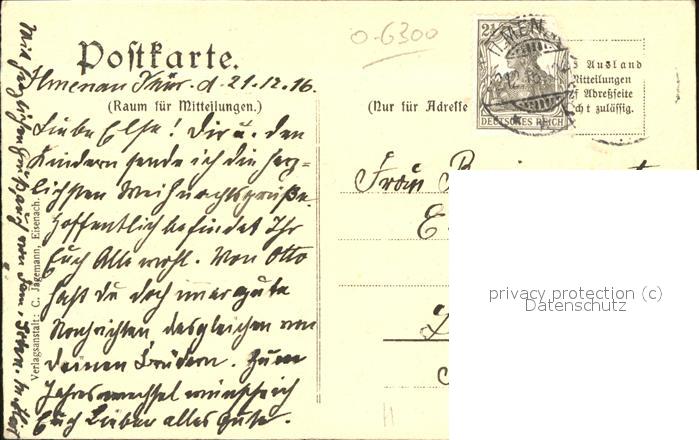 Postkarte.
Ilmenau Thür. d. 21.12.16.
(Raum für Mitteilungen.)
Liebe Else! Dir u. den
Kindern sende ich die herz=
lichsten Weihnachtsgrüße.
Hoffentlich befindet Ihr
Euch Alle wohl. Von Otto
hast du doch immer gute
Nachrichten desgleichen von
deinen Brüdern. Zum
Jahreswechsel wünsche ich
Euch Lieben alles gute.
Mit herzlichen Gruß auch von
Verlagsanstalt: C. Jagemann, Eisenach.
O-6300
(Nur für Adresse
ILMENAU
DEUTSCHES REICH
Ausland
Mitteilungen
f Adreßseite
cht zulässig.
Frau
privacy protection (c)
Datenschutz